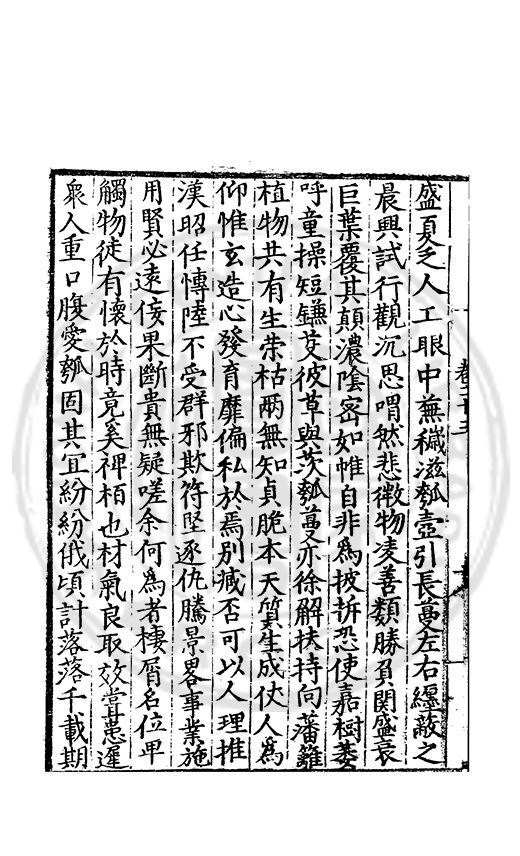 卷
盛夏乏人工眼中蕪穢滋瓠壺引長蔓左右纒敲之
晨興試行觀沉思喟然悲微物凌善類勝負関盛衰
巨葉覆其顛濃陰密如帷自非為披拆恐使嘉樹萎
呼童操短鐮芟彼草與茨瓠蔓亦徐解扶持向藩籬
植物共有生荣枯兩無知貞脆本天質生成仗人為
仰惟玄造心發育靡偏私於焉別臧否可以人理推
漢昭任愽陸不受群邪欺符堅逐仇騰景畧事業施
用賢必遠佞果斷貴無疑嗟余何為者棲屑名位卑
觸物徒有懷於時竟奚裨栢也材氣良取效嘗患遲
衆人重口腹愛瓠固其宜紛紛俄頃計落落千載期